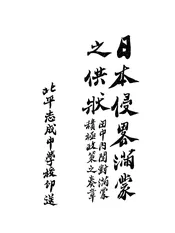 日本侵畧滿蒙
之供狀
田中內閣對滿蒙
積極政策之奏章
北平志成中學校印送